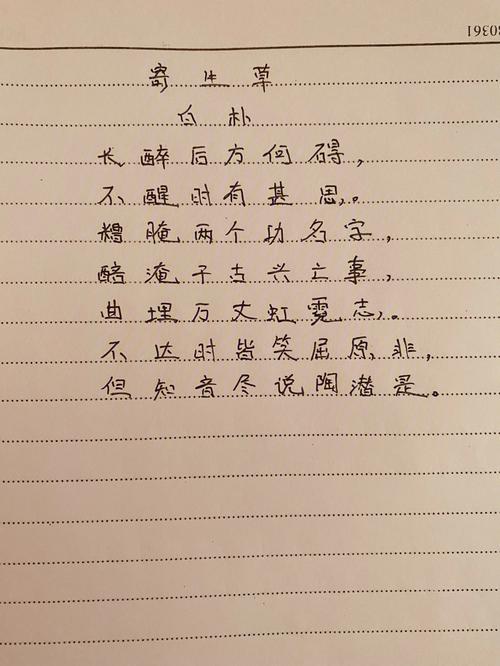 80361
寄生草
白朴
长醉后方何碍,
不醒时有甚思。
糟腌两个功名字,
醅淹千古兴亡事,
曲埋万丈虹霓志。
不达时皆笑屈原非,
但知音尽说陶潜是。